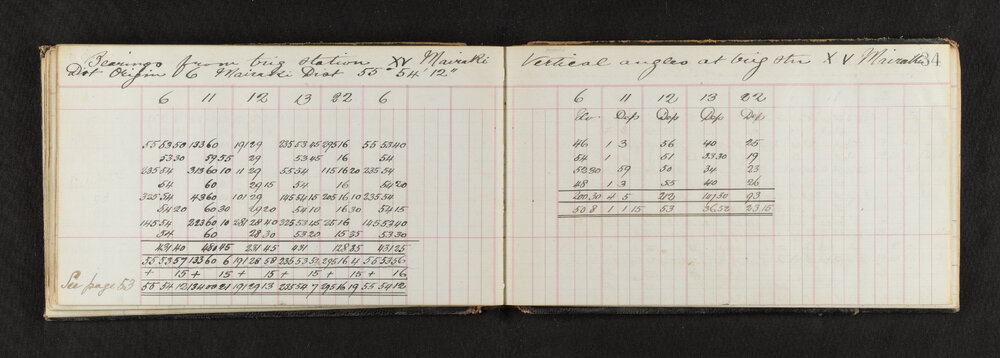 Bearings from trig station XV Wairaki
Dist Origin 6 Wairaki Dist 55° 54' 12"
6 11 12 13 22 6
55 53 50 133 60 191 29 235 53 45 295 16 55 53 40
53 30 59 55 29 53 45 16 54
235 54 313 60 10 11 29 55 54 115 16 20 235 54
54 60 29 15 54 16 54 20
325 54 43 60 101 29 145 54 15 205 16 10 325 54
54 20 60 30 29 20 54 10 16 30 54 15
145 54 223 60 10 281 28 40 325 53 45 25 16 145 53 40
54 60 28 30 53 20 15 35 53 30
431 40 480 45 231 45 431 128 35 431 25
55 53 57 133 60 6 191 28 58 235 53 52 295 16 4 55 53 56
+ 15 + 15 + 15 + 15 + 15 + 16
55 54 12 134 00 21 191 29 13 235 54 7 295 16 19 55 54 12
See page 53
Vertical angles at trig stn XV Wairaki
34
6 11 12 13 22
Elev Dep Dep Dep Dep
46 1 3 56 40 25
54 1 51 33 30 19
52 30 59 50 34 23
48 1 3 55 40 26
200 30 4 5 212 147 30 93
50 8 1 1 15 53 36 52 23 15